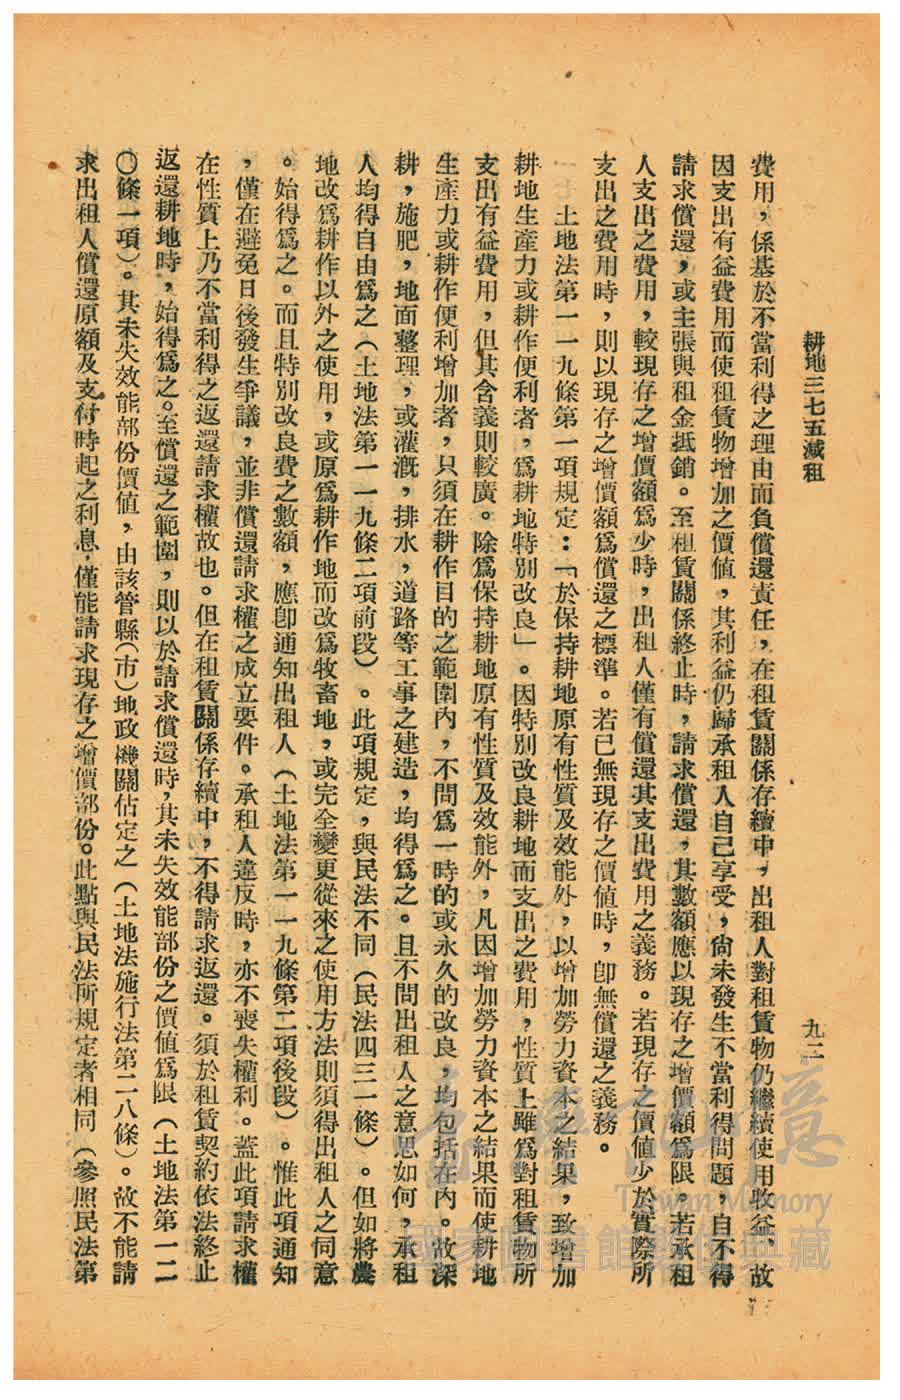 耕地三七五減租
九二
費用，係基於不當利得之理由而負償還責任，在租賃關係存續中，出租人對租賃物仍繼續使用收益，故
因支出有益費用而使租賃物增加之價值，其利益仍歸承租人自己享受，尙未發生不當利得問題，自不得
請求償還，或主張與租金抵銷。至租賃關係終止時，請求償還，其數額應以現存之增價額爲限。若承租
人支出之費用，較現存之增價額爲少時，出租人僅有償還其支出費用之義務。若現存之價値少於實際所
支出之費用時，則以現存之增價額爲償還之標準。若已無現存之價値時，卽無償還之義務。
土地法第一一九條第一項規定：「於保持耕地原有性質及效能外，以增加勞力資本之結果，致增加
耕地生產力或耕作便利者，爲耕地特別改良」。因特別改良耕地而支出之費用，性質上雖爲對租賃物所
支出有益費用，但其含義則較廣。除爲保持耕地原有性質及效能外，凡因增加勞力資本之結果而使耕地
生產力或耕作便利增加者，只須在耕作目的之範圍內，不問爲一時的或永久的改良，均包括在內。故深
耕，施肥，地面整理，或灌漑，排水，道路等工事之建造，均得爲之。且不問出租人之意思如何，承租
人均得自由爲之（土地法第一一九條二項前段）。此項規定，與民法不同（民法四三一條）。但如將農
地改爲耕作以外之使用，或原爲耕作地而改爲牧畜地，或完全變更從來之使用方法則須得出租人之同意
。始得爲之。而且特別改良費之數額，應卽通知出租人（土地法第一一九條第二項後段）。惟此項通知
，僅在避免日後發生爭議，並非償還請求權之成立要件。承租人違反時，亦不喪失權利。蓋此項請求權
在性質上乃不當利得之返還請求權故也。但在租賃關係存續中，不得請求返還。須於租賃契約依法終止
返還耕地時，始得爲之。至償還之範圍，則以於請求償還時，其未失效能部份之價値爲限（土地法第一二
〇條一項）。其未失效能部份價値，由該管縣（市）地政機關估定之（土地法施行法第二八條）。故不能請
求出租人償還原額及支付時起之利息，僅能請求現存之增價部份。此點與民法所規定者相同（參照民法第
Taiwan Memory